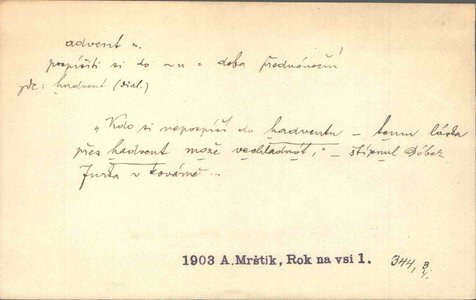 advent m.
pospíšiti si do ~u = doba předvánoční
zde: hadvent (dial.)
„Kdo si nepospíší do hadventu – temu láska
přes hadvent može vechladnót," – štípnul Dóbek
Jurka v kovárně...
1903 A. Mrštík, Rok na vsi 1. 344,